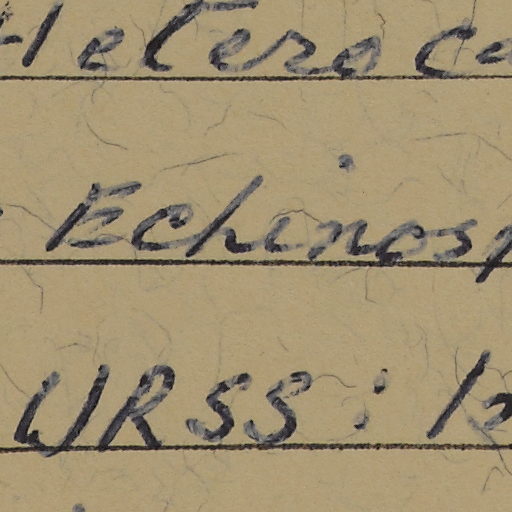 Heteroca
Echinosp
URSS :